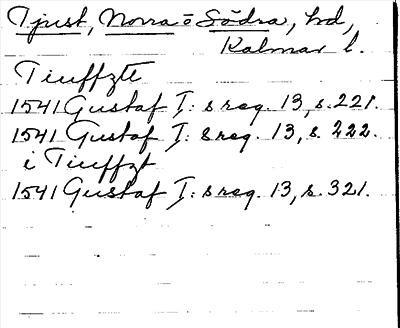 Tjust, Norra o Södra, hd,
Kalmar l.
Tiuffzte
1541 Gustaf I: s reg. 13, s. 221.
1541 Gustaf I: s reg. 13, s. 222.
i Tiuffzt
1541 Gustaf I: s reg. 13, s. 321.